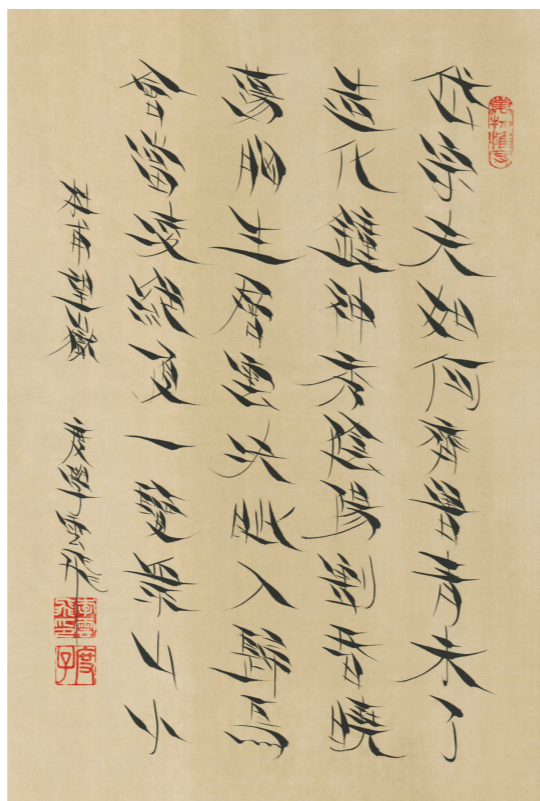 岱宗夫如何齊魯青未了
造化鍾神秀陰陽割昏曉
蕩胸生層雲決眦入歸鳥
會當凌絕頂一覽眾山小
杜甫望嶽 度學雲飛
李雲飛印